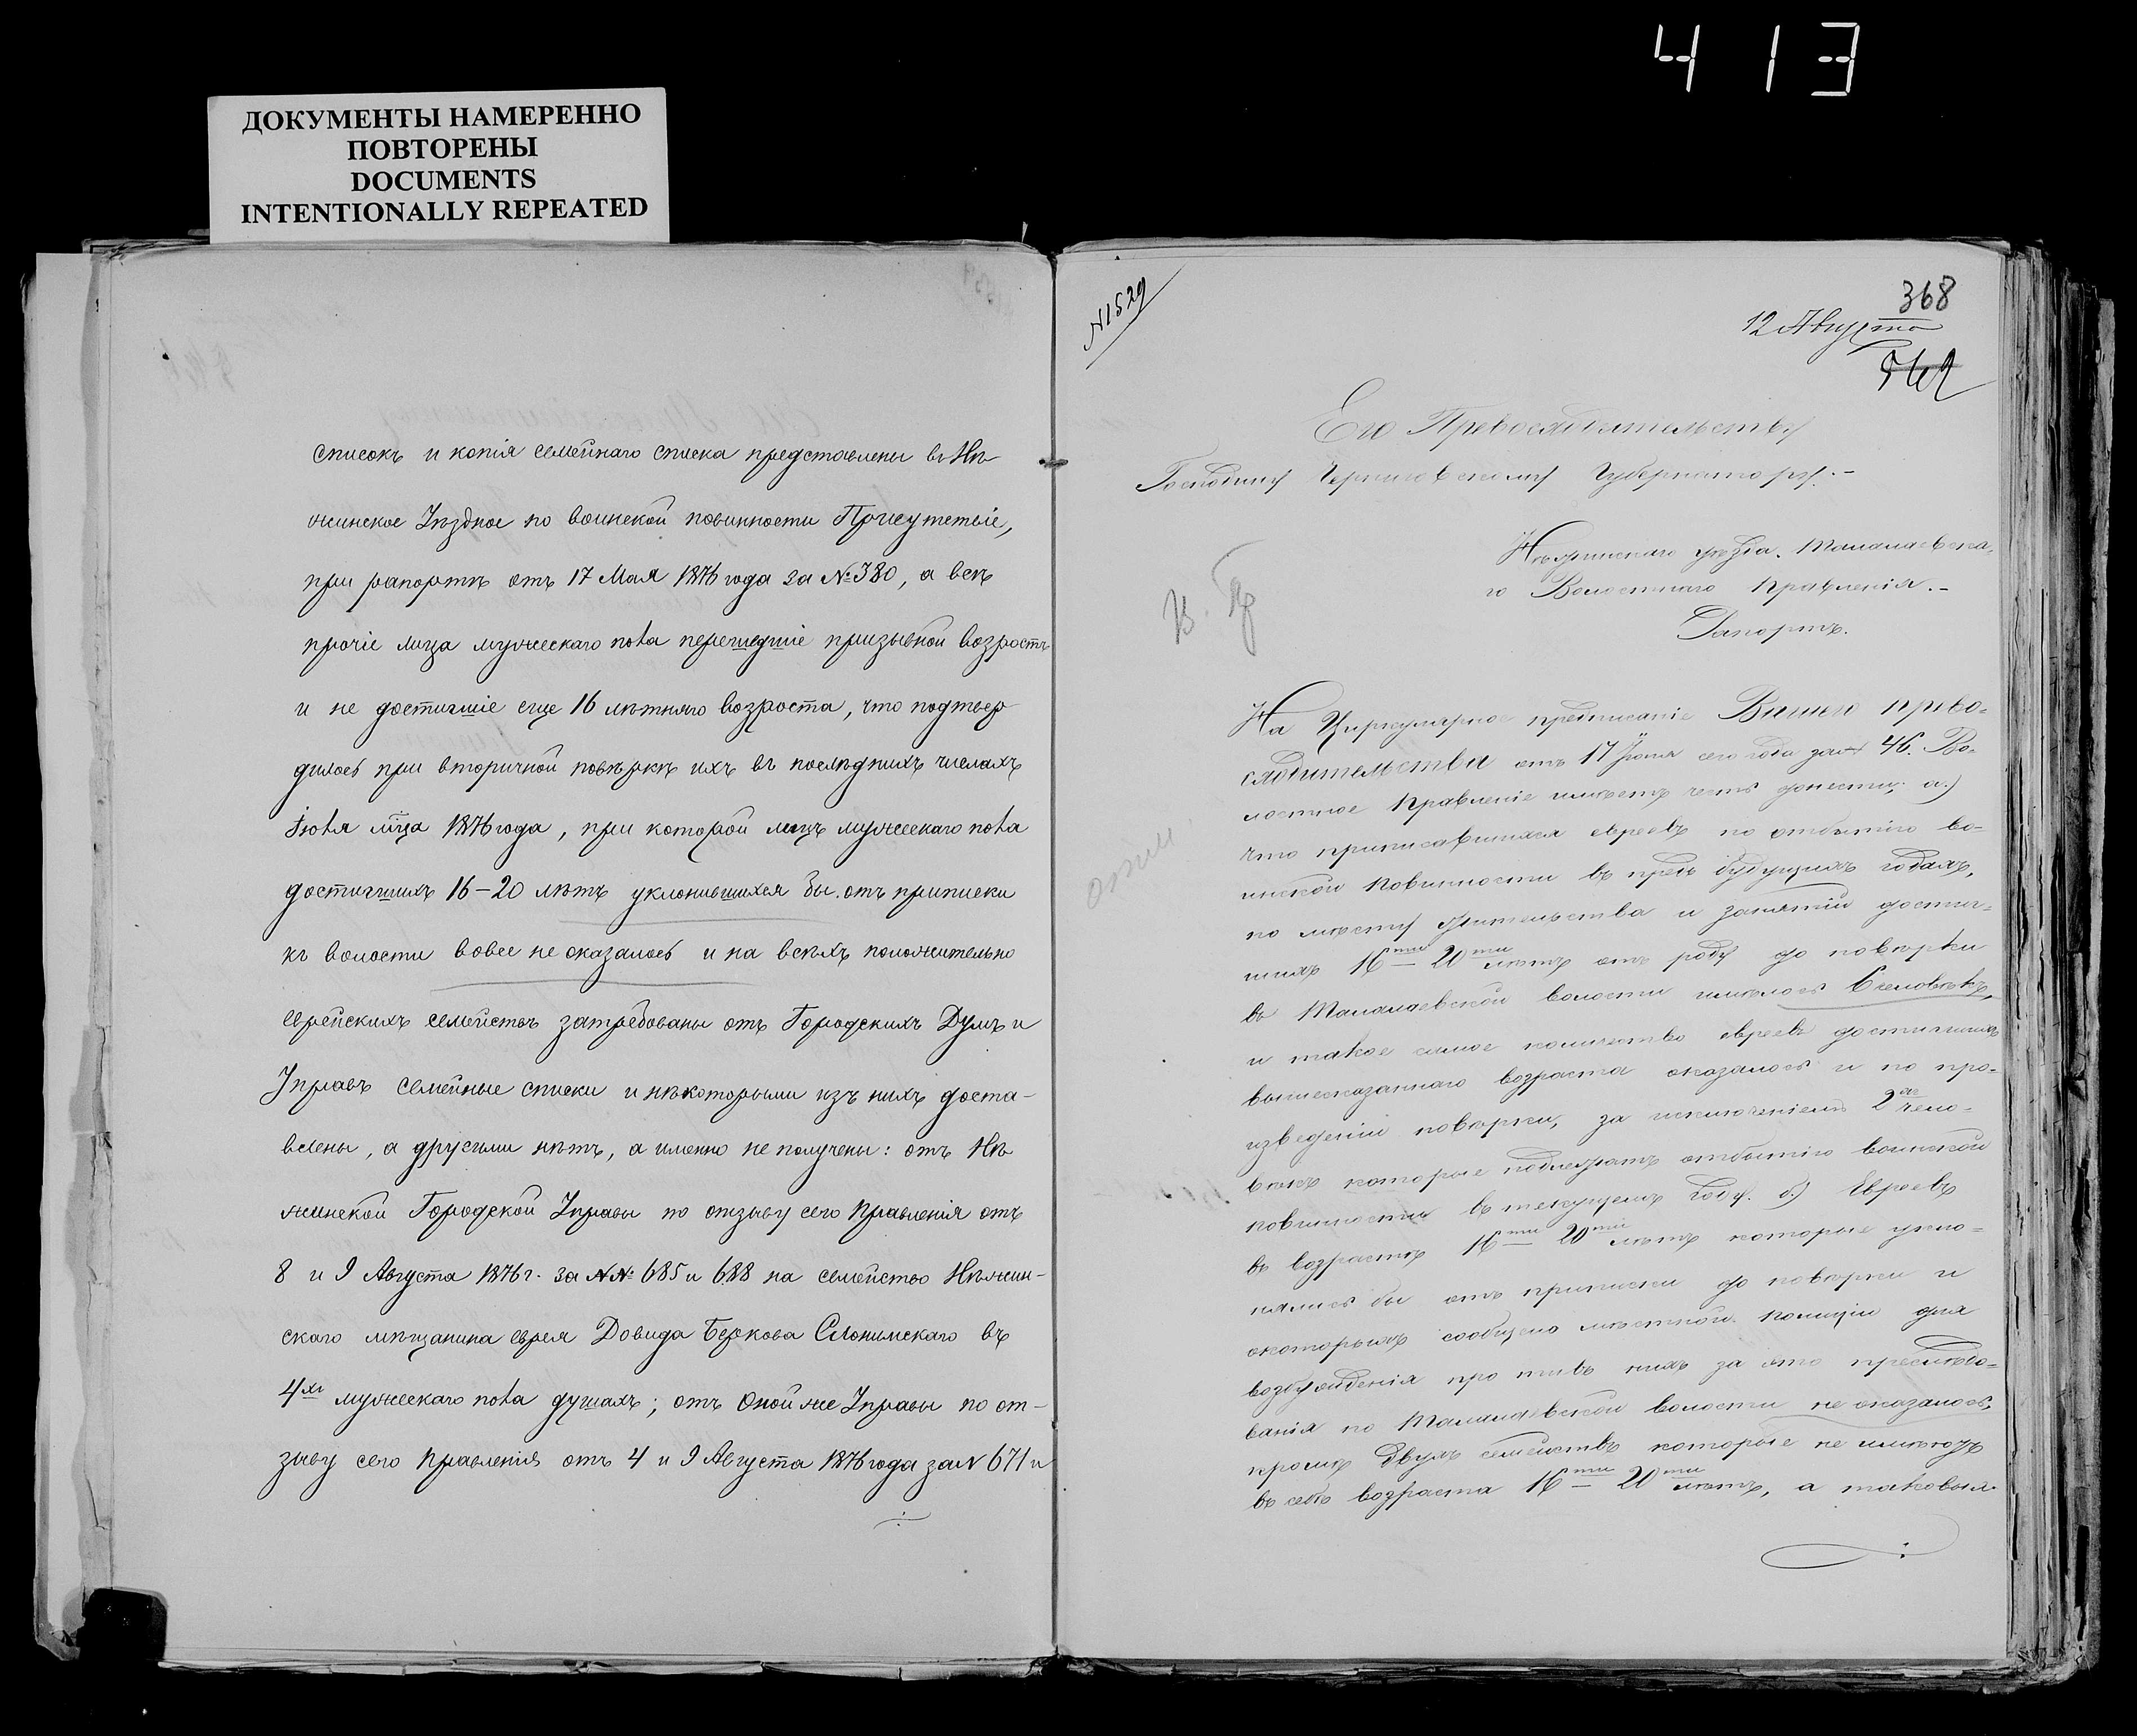 413
ДОКУМЕНТЫ НАМЕРЕННО
ПОВТОРЕНЫ
DOCUMENTS
INTENTIONALLY REPEATED
списокъ и копія семейнаго списка представлены въ Нѣ-
жинское Уѣздное по воинской повинности Присутствіе,
при рапортѣ отъ 17 Мая 1876 года за №380, а всѣ
прочіе лица мужескаго пола перешедшіе призывной возрость
и не достигшіе еще 16 лѣтняго возроста, что подтвер
дилось при вторичной повѣркѣ ихъ въ послѣднихъ числахъ
Іюля мца 1876 года, при которой лицъ мужескаго пола
достигшихъ 16-20 лѣтъ уклонившихся бы отъ приписки
къ волости вовсе не оказалось и на всѣхъ положительно
еврейскихъ семействъ затребованы отъ Городскихъ Думъ и
Управъ семейные списки и нѣкоторыми изъ нихъ доста-
влены, а другими нѣтъ, а именно не получены: отъ Нѣ
жинской Городской Управы по отзыву сего Правленія отъ
8 и 9 Августа 1876 г. за №№ 685 и 688 на семейство Нѣжин-
скаго мѣщанина еврея Довида Беркова Слонимскаго въ
4хъ мужескаго пола душахъ; отъ оной же Управы по от-
зыву сего Правленія отъ 4 и 9 Августа 1876 года за N 671 и
N1529
368
12 Августа
Его Превосходительству
Господину Черниговскому Губернатору.-
Нѣжинскаго уѣзда. Талалаевска-
го Волостнаго Правленія.-
Рапортъ.
На Циркулярное предписаніе Вашего прево-
сходительства отъ 17 Іюня сего года за № 46. Во-
лостное Правленіе имѣетъ честь донести: а.)
что приписавшихся евреевъ по отбытію во-
инской повинности въ предъ будущихъ годахъ,
по мѣсту жительства и занятій достиг-
шихъ 16ти 20ти лѣтъ отъ роду до повѣрки
въ Талалаевской волости имѣлось 6 человѣкъ,
и такое самое количество евреевъ достигшихъ
вышесказаннаго возраста оказалось и по про-
изведеній повѣрки, за исключеніемъ 2хъ чело-
вѣкъ которые подлежатъ отбытію воинской
повинности въ текущемъ году. б) Евреевъ
въ возрастѣ 16ти 20ти лѣтъ которые укло-
нялись бы отъ приписки до повѣрки и
окоторыхъ сообщено мѣстной полиціи для
возбужденія противъ нихъ за это преслѣдо-
ванія по Талалаевской волости не оказалось,
кромѣ двухъ семействъ которые не имѣютъ
въ себѣ возраста 16ти 20ти лѣтъ, а таковыя